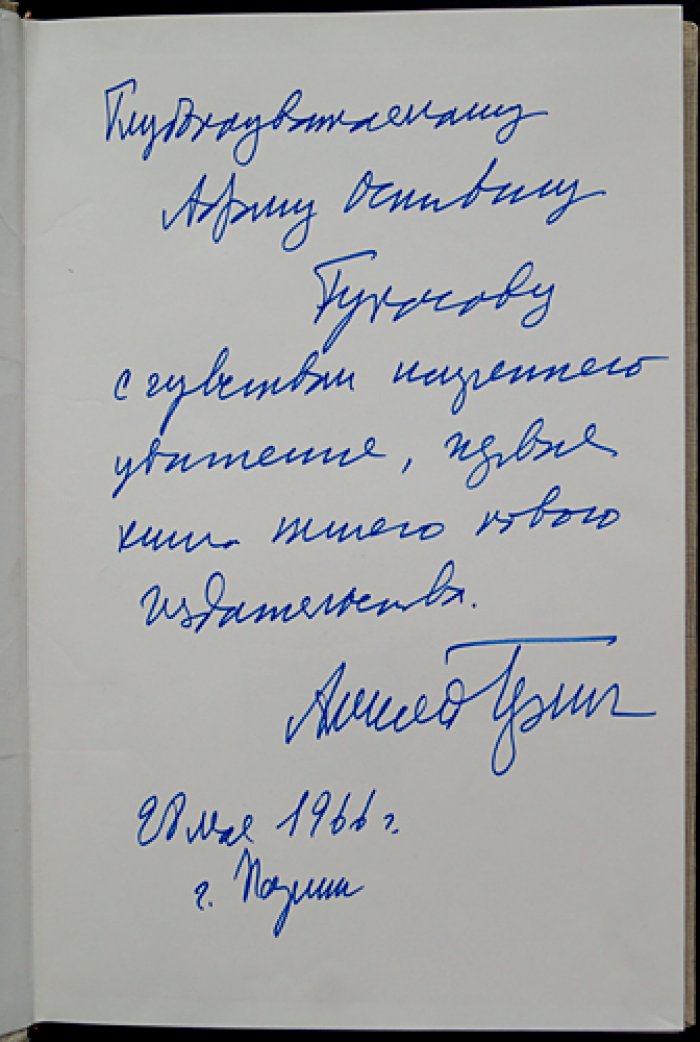 Глубокоуважаемому
Абраму Осиповичу
Гукасову
с чувством искреннего
уважения, первая
книга нашего нового
издательства.
Алексей
28 мая 1966 г.
г. Париж